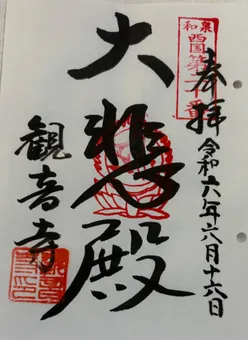 奉拝
令和六年六月十六日
大悲殿
観音寺
和泉
西国第十番